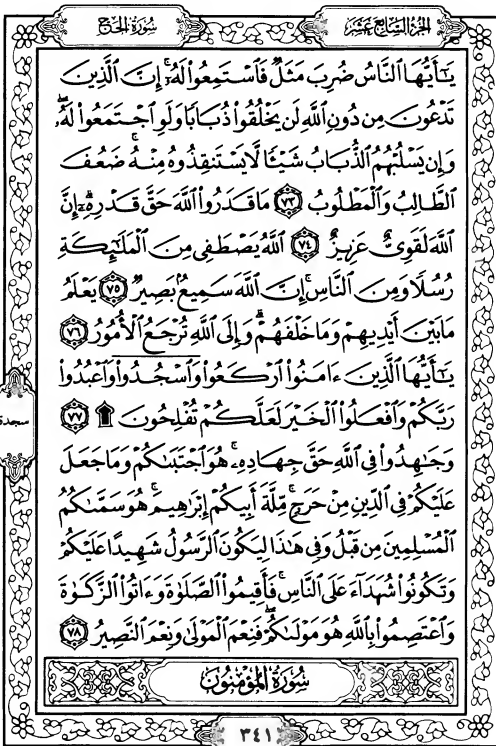 سُورَةُ الحَجِّ
الجُزْءُ السَّابِعَ عَشَرَ
يَٰٓأَيُّهَا ٱلنَّاسُ ضُرِبَ مَثَلٞ فَٱسْتَمِعُوا۟ لَهُۥٓۚ إِنَّ ٱلَّذِينَ
تَدْعُونَ مِن دُونِ ٱللَّهِ لَن يَخْلُقُوا۟ ذُبَابٗا وَلَوِ ٱجْتَمَعُوا۟ لَهُۥۖ
وَإِن يَسْلُبْهُمُ ٱلذُّبَابُ شَيْـٔٗا لَّا يَسْتَنقِذُوهُ مِنْهُۚ ضَعُفَ
ٱلطَّالِبُ وَٱلْمَطْلُوبُ ٧٣ مَا قَدَرُوا۟ ٱللَّهَ حَقَّ قَدْرِهِۦٓۗ إِنَّ
ٱللَّهَ لَقَوِىٌّ عَزِيزٌ ٧٤ ٱللَّهُ يَصْطَفِى مِنَ ٱلْمَلَٰٓئِكَةِ
رُسُلٗا وَمِنَ ٱلنَّاسِۚ إِنَّ ٱللَّهَ سَمِيعُۢ بَصِيرٞ ٧٥ يَعْلَمُ
مَا بَيْنَ أَيْدِيهِمْ وَمَا خَلْفَهُمْۗ وَإِلَى ٱللَّهِ تُرْجَعُ ٱلْأُمُورُ ٧٦
يَٰٓأَيُّهَا ٱلَّذِينَ ءَامَنُوا۟ ٱرْكَعُوا۟ وَٱسْجُدُوا۟ وَٱعْبُدُوا۟
رَبَّكُمْ وَٱفْعَلُوا۟ ٱلْخَيْرَ لَعَلَّكُمْ تُفْلِحُونَ ۩ ٧٧
سجدة
وَجَٰهِدُوا۟ فِى ٱللَّهِ حَقَّ جِهَادِهِۦۚ هُوَ ٱجْتَبَىٰكُمْ وَمَا جَعَلَ
عَلَيْكُمْ فِى ٱلدِّينِ مِنْ حَرَجٖۚ مِّلَّةَ أَبِيكُمْ إِبْرَٰهِيمَۚ هُوَ سَمَّىٰكُمُ
ٱلْمُسْلِمِينَ مِن قَبْلُ وَفِى هَٰذَا لِيَكُونَ ٱلرَّسُولُ شَهِيدًا عَلَيْكُمْ
وَتَكُونُوا۟ شُهَدَآءَ عَلَى ٱلنَّاسِۚ فَأَقِيمُوا۟ ٱلصَّلَوٰةَ وَءَاتُوا۟ ٱلزَّكَوٰةَ
وَٱعْتَصِمُوا۟ بِٱللَّهِ هُوَ مَوْلَىٰكُمْۖ فَنِعْمَ ٱلْمَوْلَىٰ وَنِعْمَ ٱلنَّصِيرُ ٧٨
سُورَةُ المُؤْمِنُونَ
٣٤١